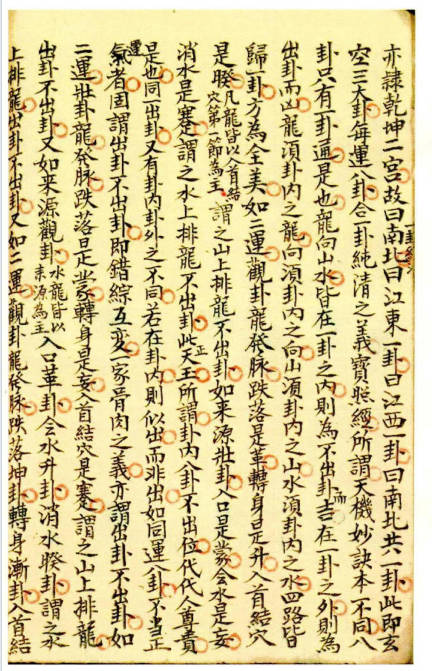 亦隸乾坤二宮故曰南北曰江東一卦曰江西一卦曰南北共一卦此即玄
空三大卦每運八卦合一卦純清之義寶照經所謂天機妙訣本不同八
卦只有一卦通是也龍向山水皆在一卦之內則為不出卦而吉在一卦之外則為
出卦而凶龍須卦內之龍向須卦內之向山須卦內之山水須卦內之水四路皆
歸一卦方為全美如二運觀卦龍發脉跌落是革轉身是升入首結穴
是睽凡龍皆以入首結穴第一節為主謂之山上排龍不出卦如來源壯卦入口是蒙合水是妄
消水是蹇謂之水上排龍不出卦此天玉所謂卦內八卦不出位代代人尊貴
是也同一出卦又有卦內卦外之不同若在卦內則似出而非出如同運八卦不當正
運氣者固謂出卦不出卦即錯綜互變一家骨肉之義亦謂出卦不出卦如
二運壯卦龍發脉跌落是蒙轉身是妄入首結穴是蹇謂之山上排龍
出卦不出卦又如來源觀卦水龍皆以來源為主入口革卦合水升卦消水睽卦謂之水
上排龍出卦不出卦又如二運觀卦龍發脉跌落坤卦轉身漸卦入首結